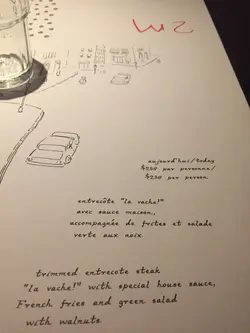 aujourd'hui/today
$250 par personne/
$250 per person
entrecôte "la vache!"
avec sauce maison,
accompagnée de frites et salade
verte aux noix
trimmed entrecote steak
"la vache!" with special house sauce,
French fries and green salad
with walnuts